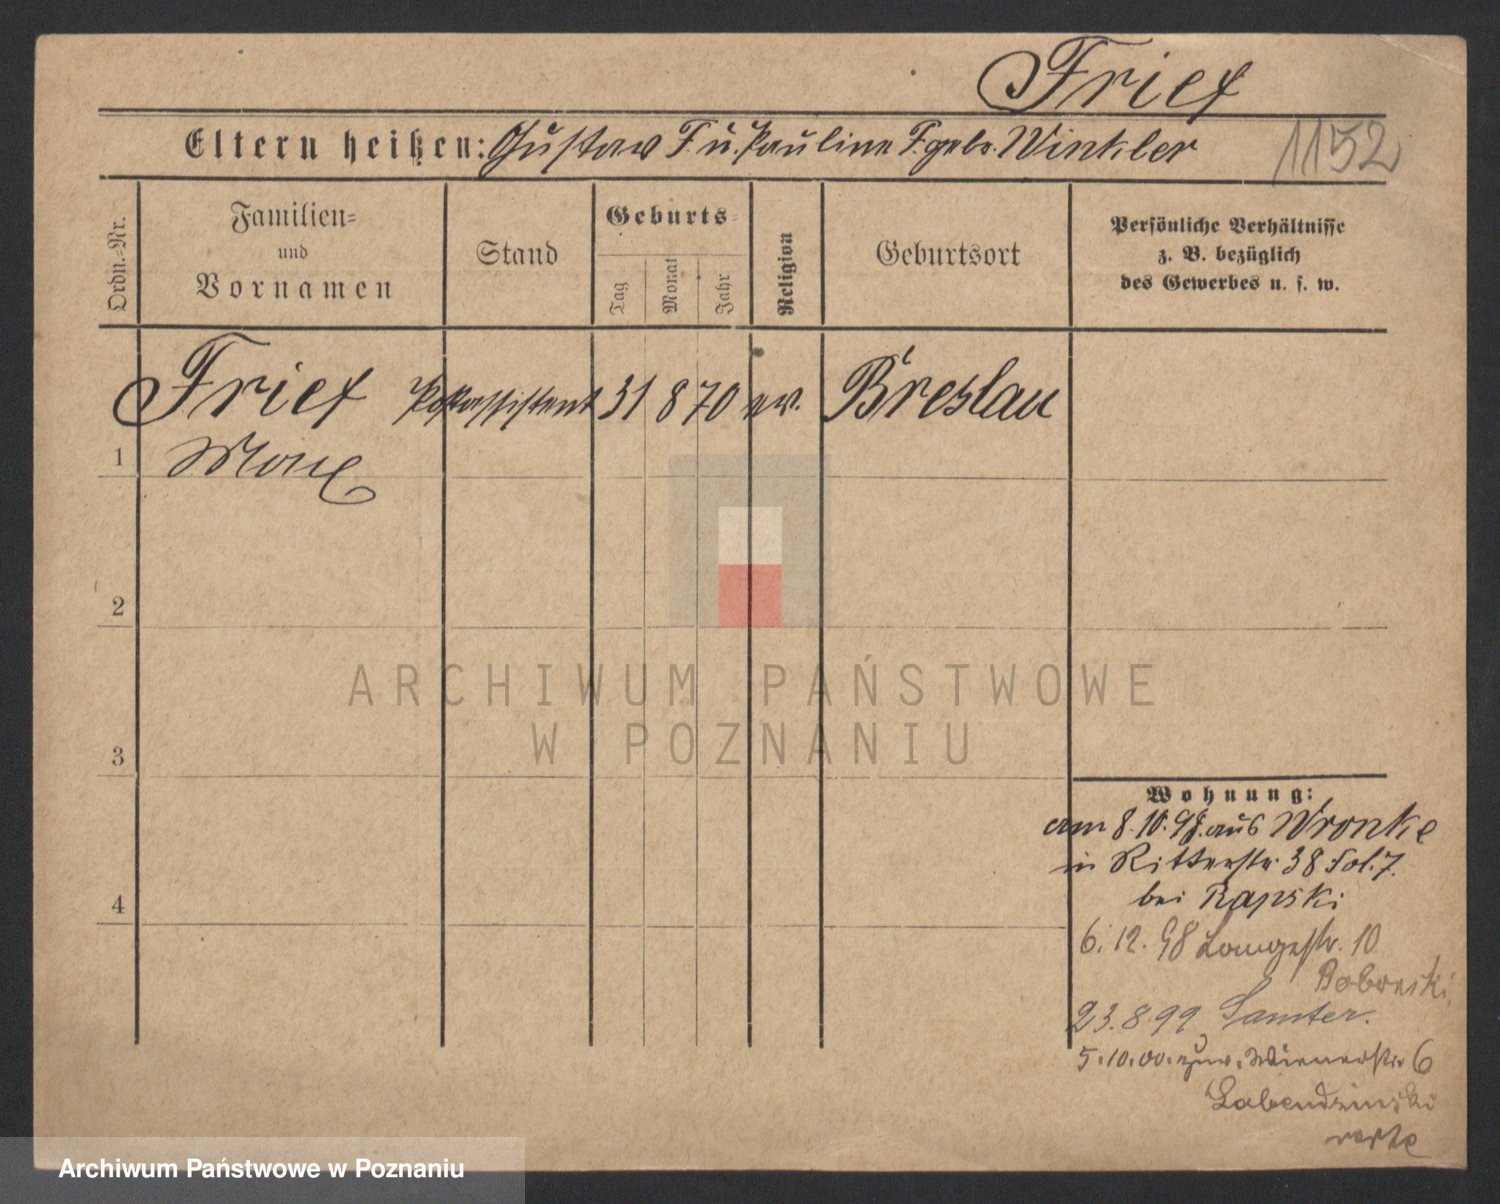 Frief
Eltern heißen: Gustav F u. Pauline F gebr. Winkler
1152
Ordn.-Nr.
Familien-
und
Vornamen
Stand
Geburts-
Tag
Monat
Jahr
Religion
Geburtsort
Persönliche Verhältnisse
z. B. bezüglich
des Gewerbes u. s. w.
Frief Postassistent 31 8 70 ev. Breslau
1 Max
2
3
4
ARCHIWUM PAŃSTWOWE
W POZNANIU
Wohnung:
am 8.10.98. aus Wronke
in Ritterstr. 38 Fol. 7.
bei Rapski
6.12.98 Langestr. 10
23.8.99 Samter.
5.10.00. zur. Wienerstr 6
Labendzinski
Archiwum Państwowe w Poznaniu